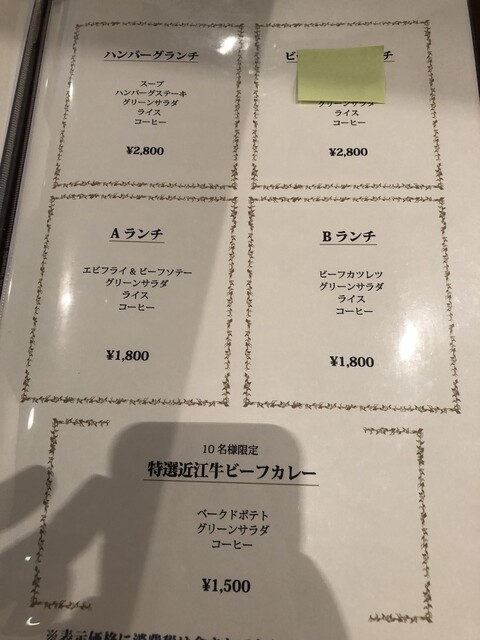 ハンバーグランチ
スープ
ハンバーグステーキ
グリーンサラダ
ライス
コーヒー
¥2,800
グリーンサラダ
ライス
コーヒー
¥2,800
Aランチ
エビフライ＆ビーフソテー
グリーンサラダ
ライス
コーヒー
¥1,800
Bランチ
ビーフカツレツ
グリーンサラダ
ライス
コーヒー
¥1,800
10名様限定
特選近江牛ビーフカレー
ベークドポテト
グリーンサラダ
コーヒー
¥1,500
※表示価格に消費税は